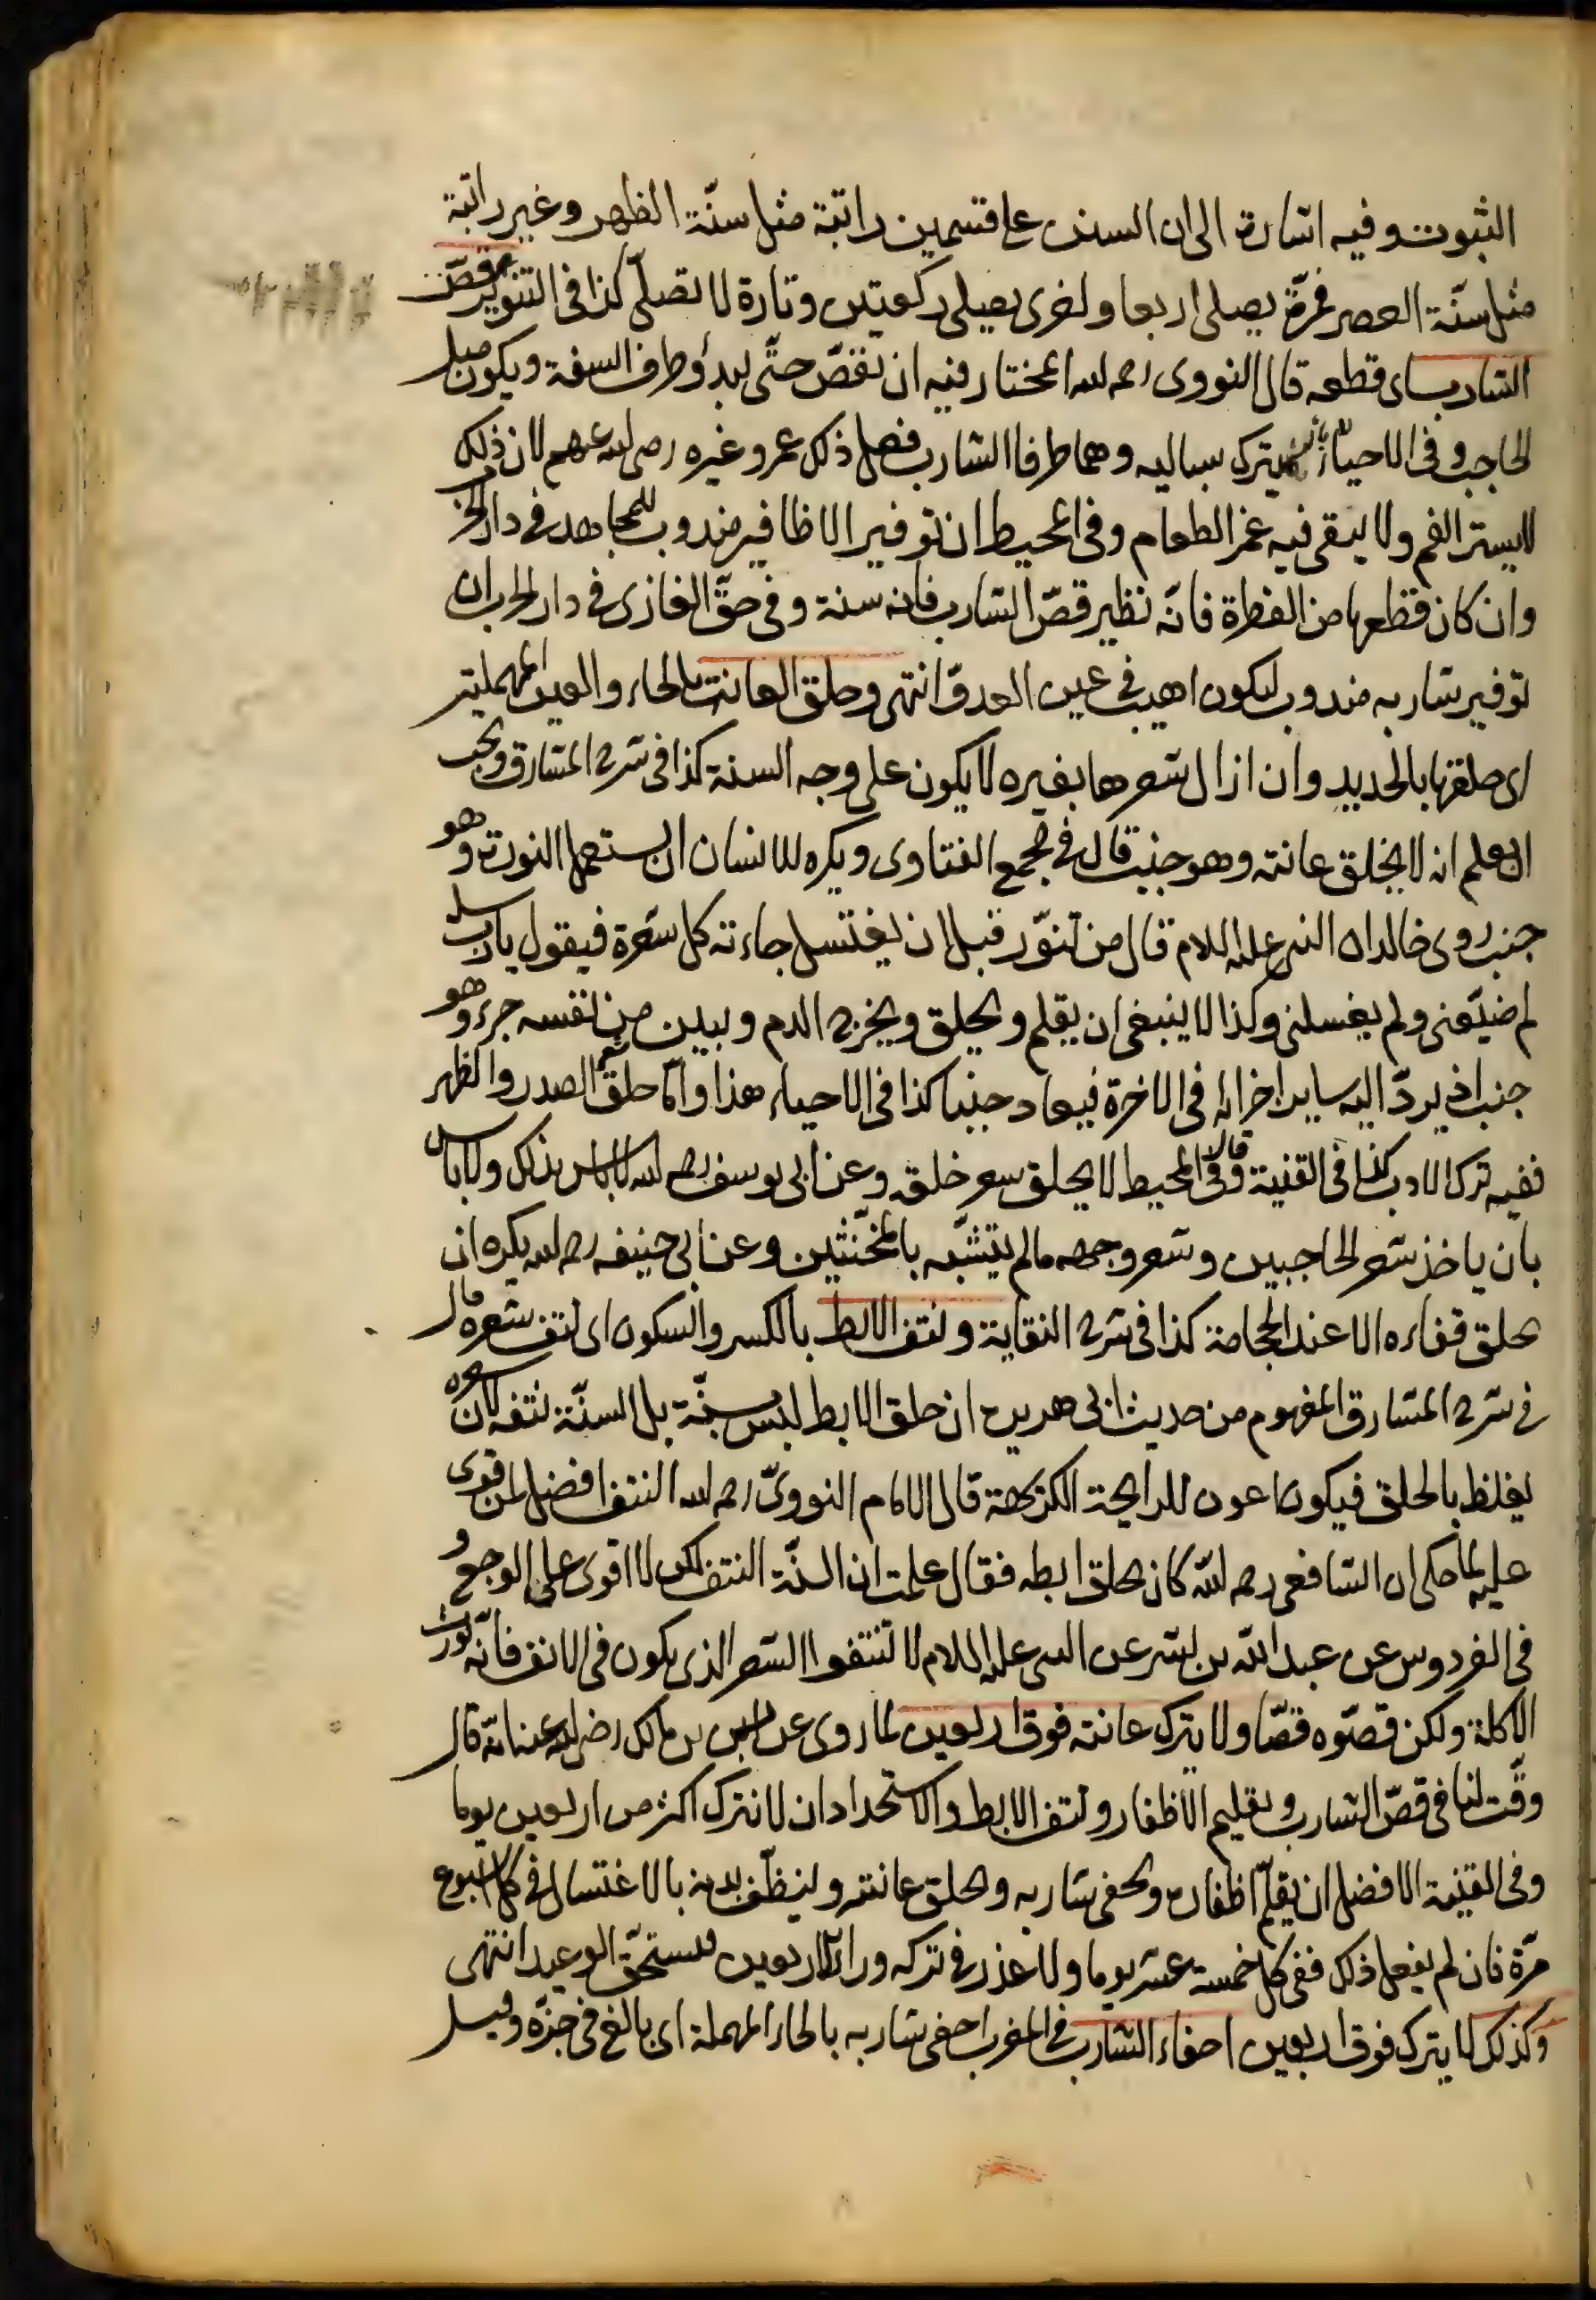 الثبوت وفيه اشارة الى ان السنن على قسمين راتبة مثل سنّة الظهر وغير راتبة
مثل سنّة العصر فمرّة يصلى اربعا واخرى يصلى ركعتين وتارة لا تصلّى كذا فى التنوير وقصّ
الشارب اى قطعه قال النووى رحمه الله المختار فيه ان تقصّ حتّى يبدؤ طرف الشفة ويكون مثل
الحاجب وفى الاحياء لا بأس بترك سباليه وهما طرفا الشارب فعل ذلك عمر وغيره رضى الله عنهم لان ذلك
لا يستر الفم ولا يبقى فيه غمز الطعام وفى المحيط ان توفير الاظافير مندوب للمجاهد فى دار الحرب
وان كان قطعها من الفطرة فانّه نظير قصّ الشارب فانه سنة وفى حقّ الغازى فى دار الحرب ان
توفير شاربه مندوب ليكون اهيب فى عين العدوّ انتهى وحلق العانت بالحاء والعين المهملتين
اى حلقها بالحديد وان ازال شعرها بغيره لا يكون على وجه السنة كذا فى شرح المشارق ويجب
ان يعلم انه لا يحلق عانته وهو جنب قال فى مجمع الفتاوى ويكره للانسان ان يستعمل النورة وهو
جنب روى خالد ان النبى عليه السلام قال من تنوّر قبل ان يغتسل جاءته كل شعرة فيقول يا رب سله
لم ضيّعنى ولم يغسلنى وكذا لا ينبغى ان يقلم ويحلق ويخرج الدم ويبين من نفسه جزء وهو
جنب اذ يردّ اليه ساير اجزائه فى الاخرة فيعاد جنبا كذا فى الاحياء هذا وامّا حلق شعر الصدر والظهر
ففيه ترك الادب كذا فى القنية قال وفى المحيط لا يحلق شعر حلقه وعن ابى يوسف رحمه الله لا بأس بذلك ولا بأس
بان ياخذ شعر الحاجبين وشعر وجهه ما لم يتشبّه بالمخنّثين وعن ابى حنيفه رحمه الله يكره ان
يحلق قفاءه الا عند الحجامة كذا فى شرح النقاية ونتف الابط بالكسر والسكون اى نتف شعره قال
فى شرح المشارق المفهوم من حديث ابى هريرة ان حلق الابط ليس بسنّة بل السنّة نتفه لان شعره
يغلظ بالحلق فيكون اعون للرايحة الكريهة قال الامام النووىّ رحمه الله النتف افضل لمن قوى
عليه لما حكى ان الشافعى رحمه الله كان يحلق ابطه فقال علمت ان السنّة النتف لكن لا اقوى على الوجع و
فى الفردوس عن عبد الله بن بشر عن النبى عليه السلام لا تنتفوا الشعر الذى يكون فى الانف فانّه يورث
الاكلة ولكن قصّوه قصّا ولا يترك عانته فوق اربعين لما روى عن انس بن مالك رضى الله عنه انّه قال
وقّت لنا فى قصّ الشارب وتقليم الاظفار ونتف الابط والاستحداد ان لا نترك اكثر من اربعين يوما
وفى القنية الافضل ان يقلّم اظفاره ويحفى شاربه ويحلق عانته وينظّف بدنه بالاغتسال فى كل اسبوع
مرّة فان لم يفعل ذلك ففى كل خمسة عشر يوما ولا عذر فى تركه وراء الاربعين فيستحقّ الوعيد انتهى
وكذلك لا يترك فوق اربعين احفاء الشارب فى المغرب احفى شاربه بالحاء المهملة اى بالغ فى جزّه وقيل